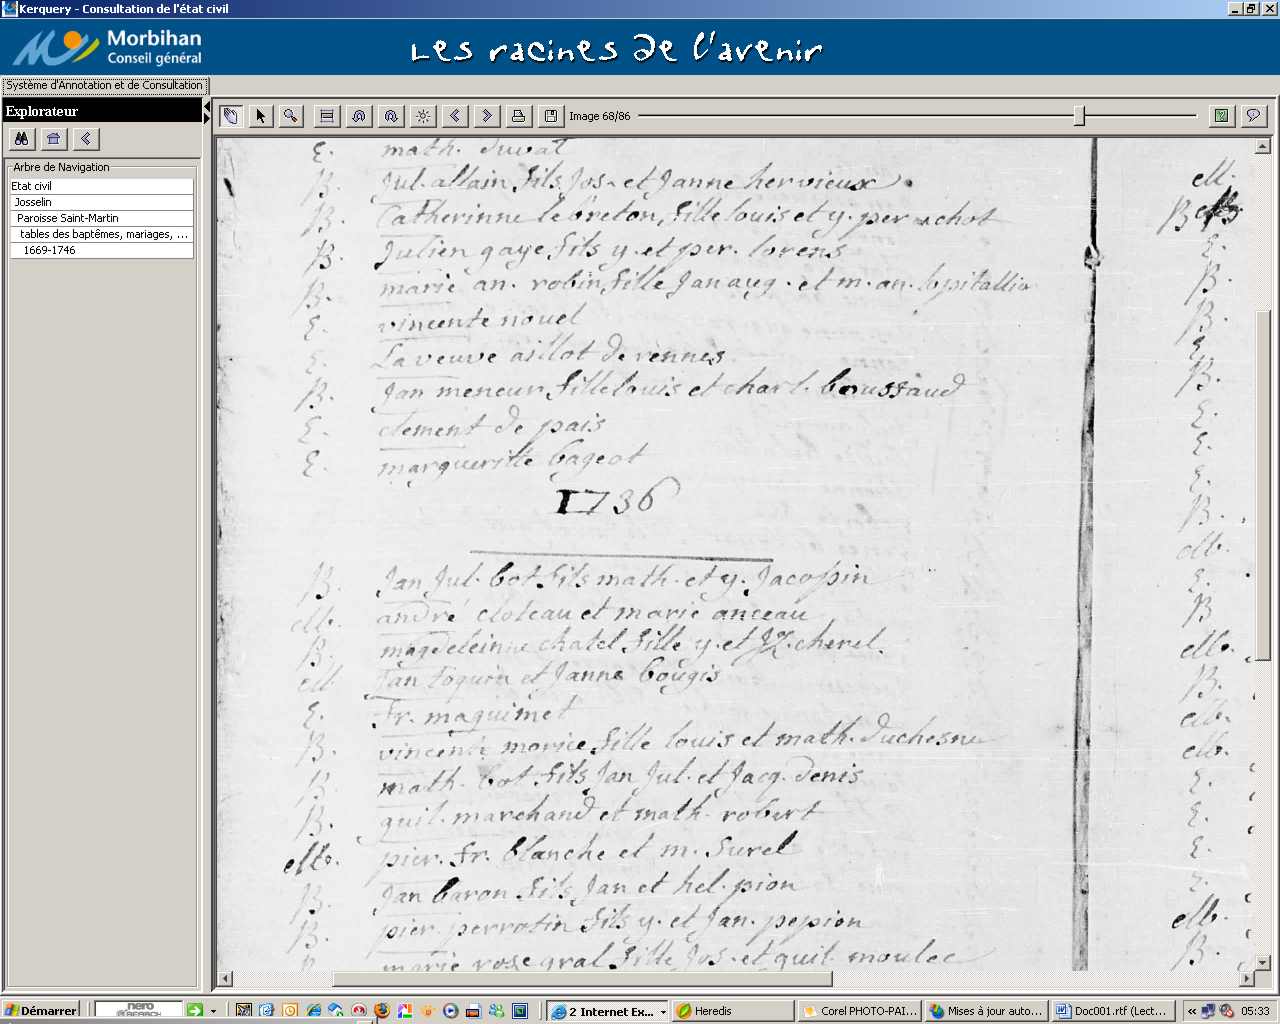 Kerquery - Consultation de l'état civil
Morbihan
Conseil général
Les racines de l'avenir
Système d'Annotation et de Consultation
Explorateur
Image 68/86
Arbre de Navigation
Etat civil
Josselin
Paroisse Saint-Martin
tables des baptêmes, mariages, ...
1669-1746
E. math. duvat
B. Jul. allain fils Jos. et Janne hervieux. ell.
B. Catherinne le breton, fille louis et y. per B
B. Julien gaye fils y. et per. lorens E.
B. marie an. robin, fille Jan aug. et m. an. B.
E. vincente nouel B.
E. La veuve aillot de rennes E
B. Jan meneur fille louis et charl. boussaud B.
E. clement de pais E.
E. margueritte bageot E.
1736
B. Jan Jul. bot fils math. et y. Jacopin
elle. andré cloteau et marie anceau B
B. magdeleinne chatel fille y. et cherel. elle.
ell Jan et Janne bougis B.
E. fr. maguimet elle.
B. vincente morice fille louis et math. duchesne elle.
B. math. bot fils Jan Jul. et Jacq. denis E.
B. guil. marchand et math. robert E.
elle. pier. fr. blanche et m. Surel E.
B. Jan baron fils Jan et hel. pion E.
B. pier. perrotin fils y. et Jan. pepion elle.
B. marie rose gral fille Jos. et guil. moulec B.
Démarrer
nero
SEARCH
2 Internet Ex...
Heredis
Corel PHOTO-PAI...
Mises à jour auto...
Doc001.rtf (Lect...
05:33